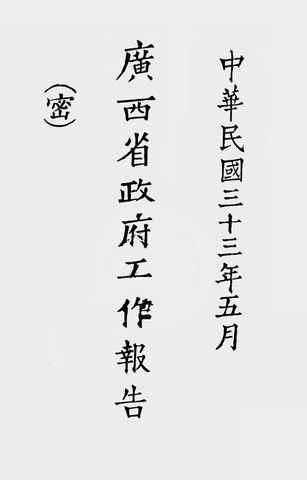 中華民國三十三年五月
廣西省政府工作報告
(密)